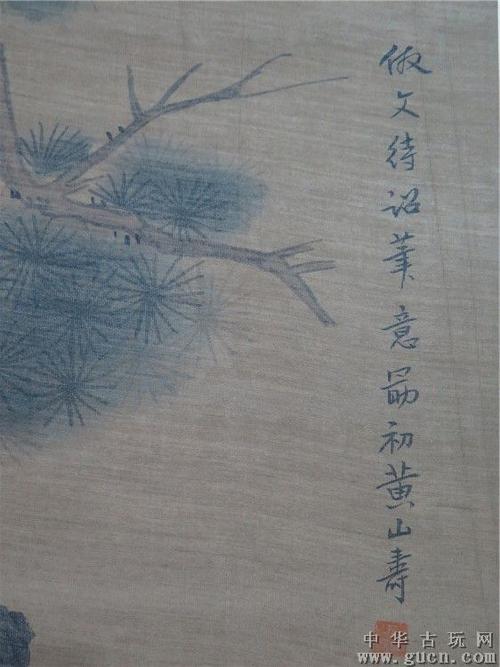 倣文待詔筆意勗初黄山壽
中华古玩网
www.gucn.com